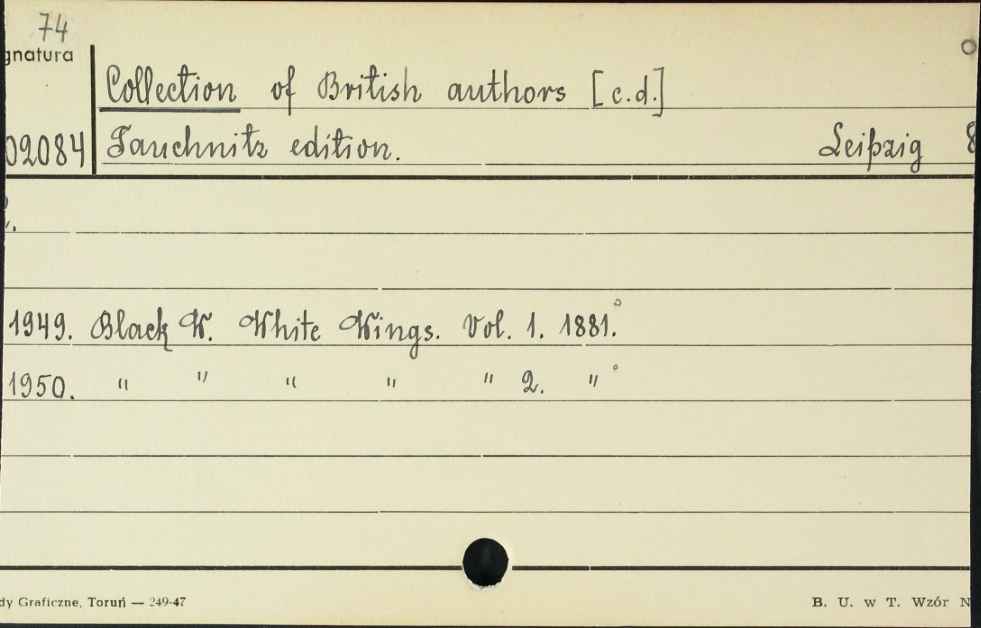 74
gnatura
Collection of British authors [c.d.]
02084 Tauchnitz edition. Leipzig 8
1949. Black W. White Wings. Vol. 1. 1881.°
1950. " " " " " 2. " °
dy Graficzne, Toruń — 249-47 B. U. w T. Wzór N